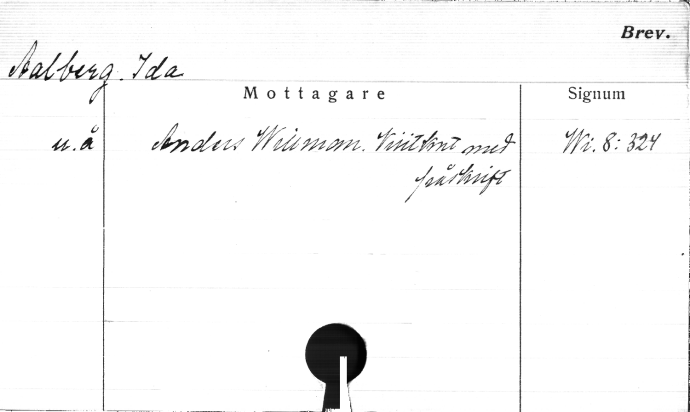 Brev.
Aalberg. Ida
Mottagare Signum
u. å Anders Willman. Visitkort med Wi. 8: 324
påskrift